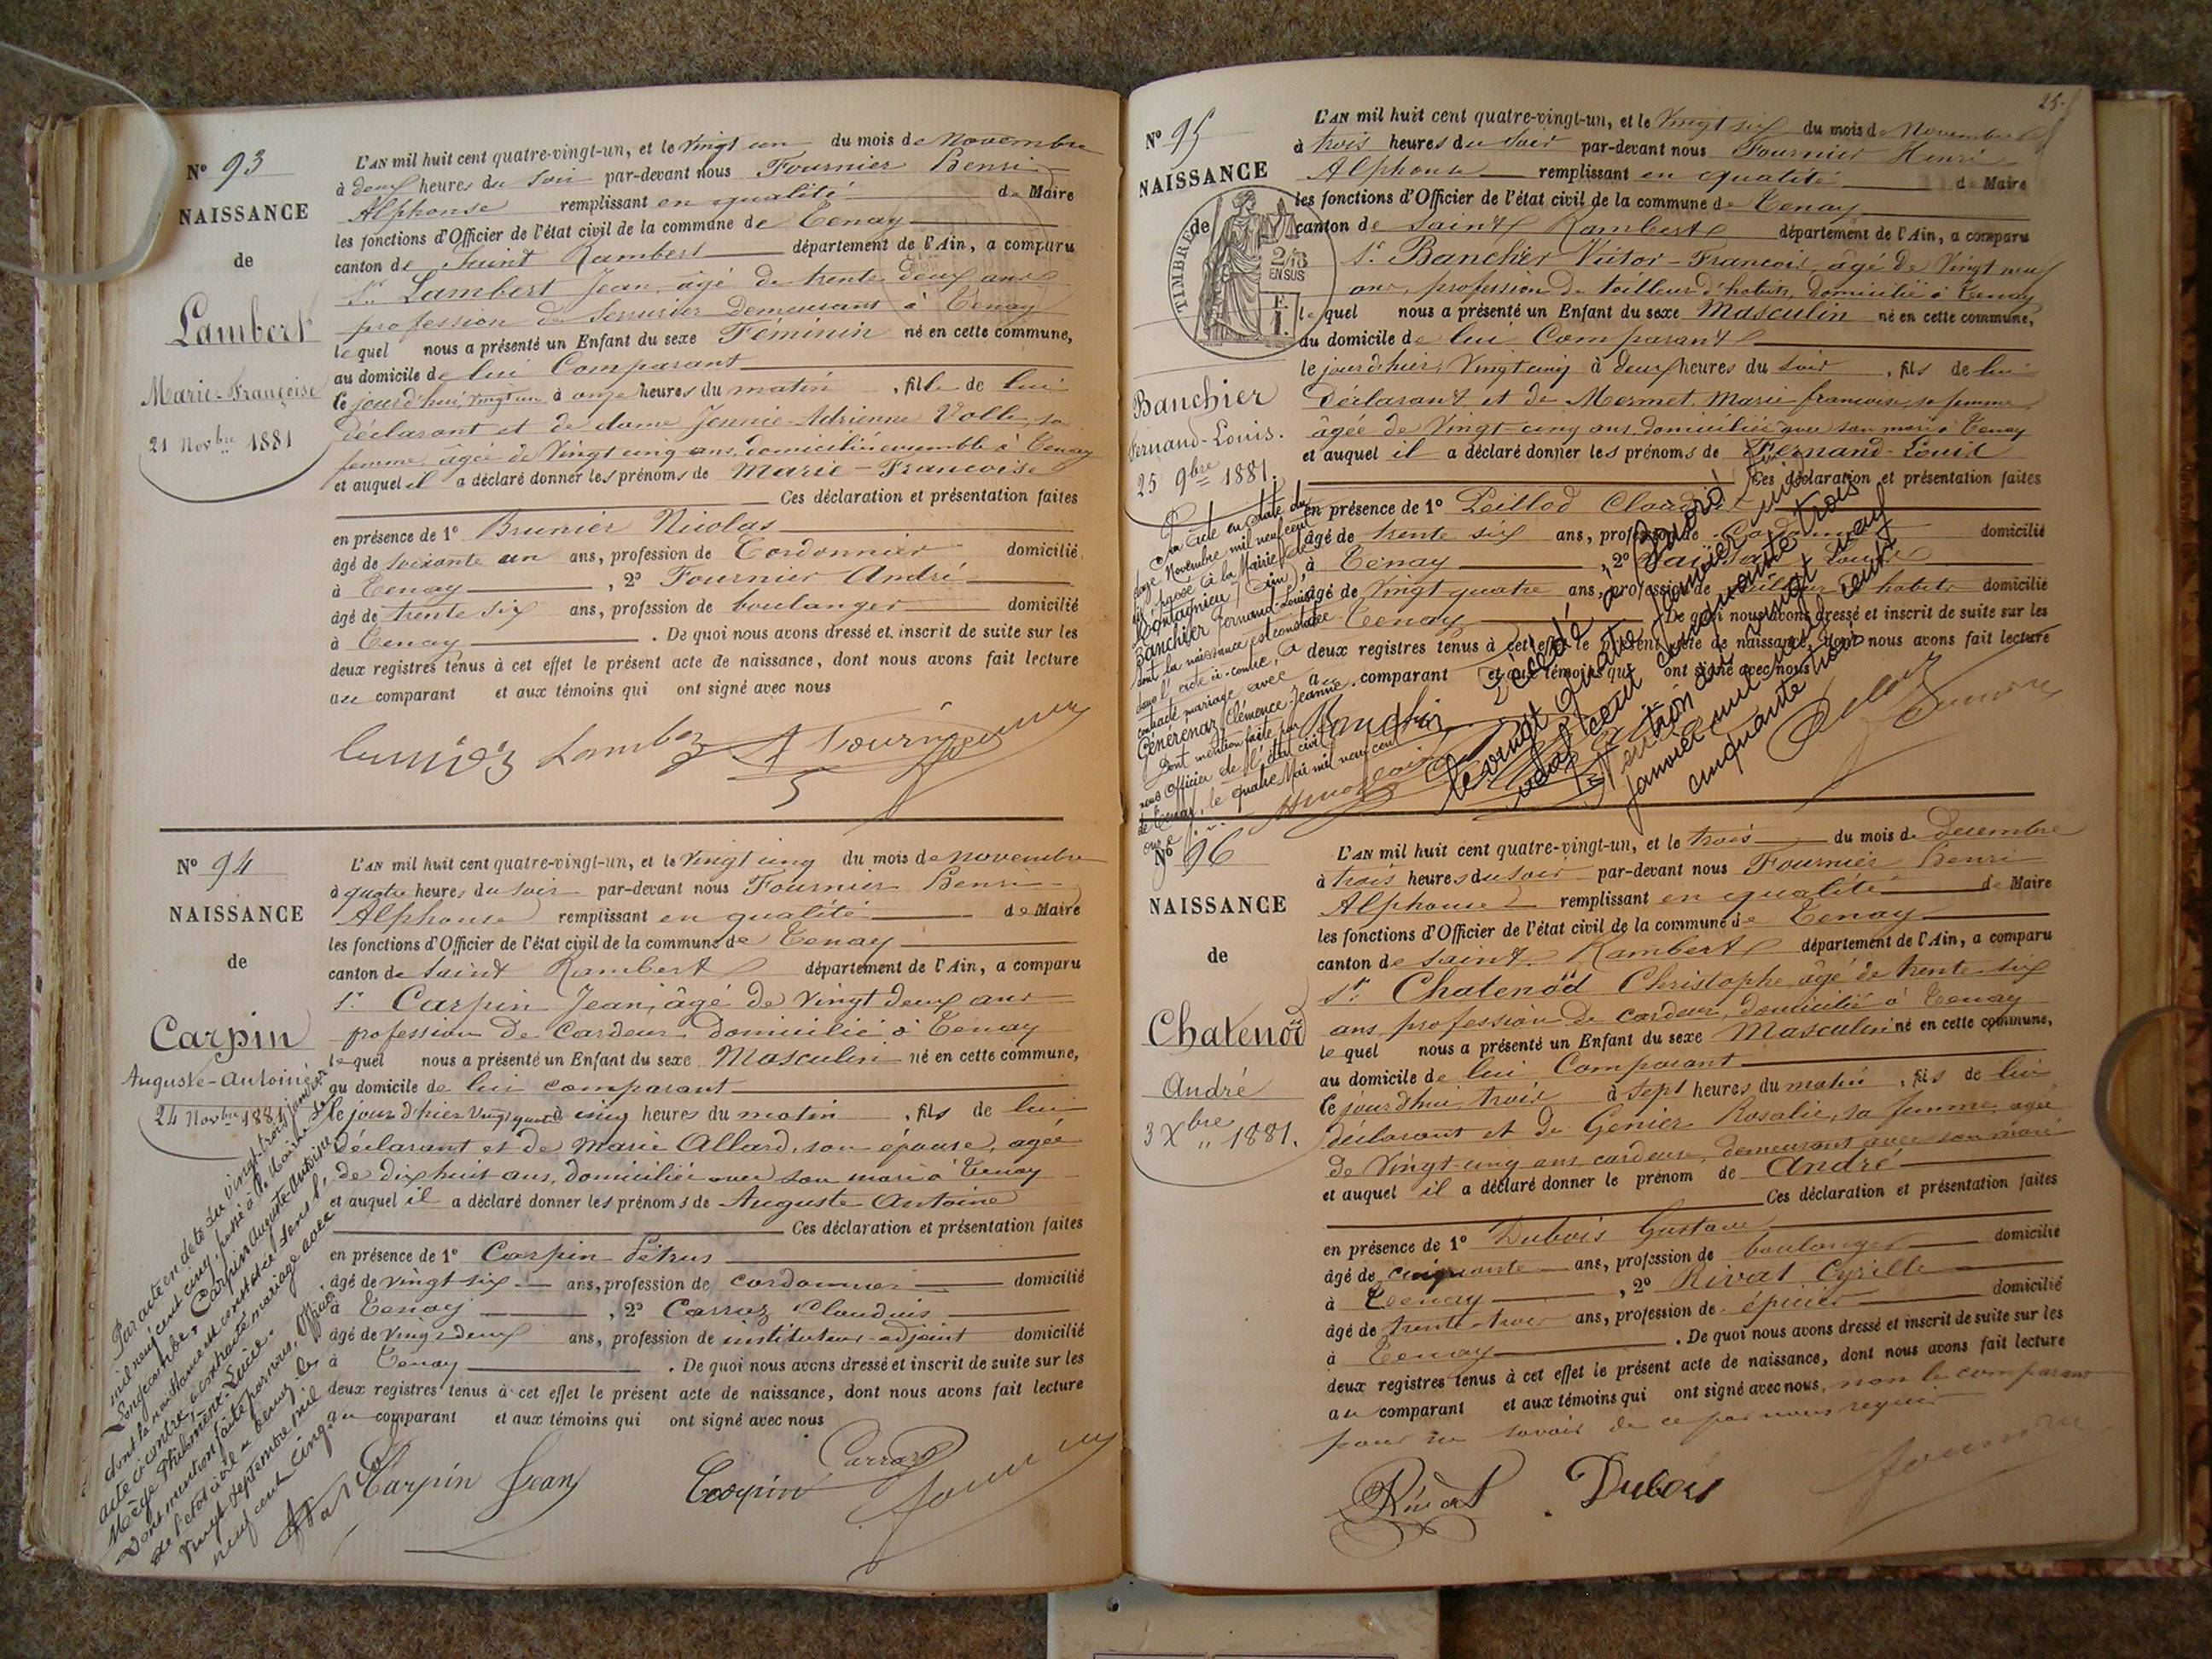 N° 93
NAISSANCE
de
Lambert
Marie-Françoise
21 Novbre 1881
L'AN mil huit cent quatre-vingt-un, et le vingt un du mois de Novembre
à deux heures du soir par-devant nous Fournier Henri
Alphonse remplissant en qualité de Maire
les fonctions d'Officier de l'état civil de la commune de Tenay
canton de Saint Rambert département de l'Ain, a comparu
Sr. Lambert Jean, âgé de trente deux ans
profession de Serrurier Demeurant à Tenay
lequel nous a présenté un Enfant du sexe Féminin né en cette commune,
au domicile de lui Comparant
le jourd'hui, vingt un à onze heures du matin, fille de lui
déclarant et de dame Jennie Adrienne Volle, sa
femme, âgée de Vingt cinq ans, domiciliée ensemble à Tenay
et auquel il a déclaré donner les prénoms de Marie-Francoise
Ces déclaration et présentation faites
en présence de 1° Brunier Nicolas
âgé de soixante un ans, profession de Cordonnier domicilié
à Tenay, 2° Fournier André
âgé de trente six ans, profession de boulanger domicilié
à Tenay. De quoi nous avons dressé et inscrit de suite sur les
deux registres tenus à cet effet le présent acte de naissance, dont nous avons fait lecture
au comparant et aux témoins qui ont signé avec nous
Lambert A Fournier
N° 94
NAISSANCE
de
Carpin
Auguste-Antoine
24 Novbre 1881
L'AN mil huit cent quatre-vingt-un, et le Vingt cinq du mois de novembre
à quatre heures du soir par-devant nous Fournier Henri
Alphonse remplissant en qualité de Maire
les fonctions d'Officier de l'état civil de la commune de Tenay
canton de Saint Rambert département de l'Ain, a comparu
Sr. Carpin Jean, âgé de Vingt deux ans
profession de Cardeur domicilié à Tenay
lequel nous a présenté un Enfant du sexe Masculin né en cette commune,
au domicile de lui comparant
le jour d'hier vingt quatre à cinq heures du matin, fils de lui
déclarant et de Marie Allard, son épouse, agée
de dixhuit ans, domiciliée avec son mari à Tenay
et auquel il a déclaré donner les prénoms de Auguste Antoine
Ces déclaration et présentation faites
en présence de 1° Carpin Pétrus
âgé de vingt six ans, profession de cordonnier domicilié
à Tenay, 2° Carraz Claudius
âgé de vingt deux ans, profession de instituteur-adjoint domicilié
à Tenay. De quoi nous avons dressé et inscrit de suite sur les
deux registres tenus à cet effet le présent acte de naissance, dont nous avons fait lecture
au comparant et aux témoins qui ont signé avec nous
Carpin Jean Carpin Carraz
Par acte en date du vingt-trois janvier
mil neuf cent cinq, passé à la Mairie de
Carpin Auguste-Antoine
dont la naissance est constatée dans l'
acte ci-contre, a contracté mariage avec
Philomène-Lucie.
Dont mention faite par nous, Officier
de l'état civil à Tenay, le
vingt septembre mil
neuf cent cinq.
25
N° 95
NAISSANCE
de
TIMBRE
2/5
EN SUS
Banchier
Fernand-Louis.
25 9bre 1881.
L'AN mil huit cent quatre-vingt-un, et le Vingt six du mois de Novembre
à trois heures du soir par-devant nous Fournier Henri
Alphonse remplissant en qualité de Maire
les fonctions d'Officier de l'état civil de la commune de Tenay
canton de Saint Rambert département de l'Ain, a comparu
Sr. Banchier Victor-Francois, âgé de Vingt neuf
ans, profession de tailleur d'habits, domicilié à Tenay
lequel nous a présenté un Enfant du sexe Masculin né en cette commune,
au domicile de lui Comparant
le jour d'hier Vingt cinq à deux heures du soir, fils de lui
déclarant et de Mermet Marie francoise, sa femme
âgée de Vingt-cinq ans, domiciliée avec son mari à Tenay
et auquel il a déclaré donner les prénoms de Fernand-Louis
Ces déclaration et présentation faites
en présence de 1° Peillod Claude
âgé de trente six ans, profession de domicilié
à Tenay, 2° Louis
âgé de Vingt quatre ans, profession de tailleur d'habits domicilié
à Tenay. De quoi nous avons dressé et inscrit de suite sur les
deux registres tenus à cet effet le présent acte de naissance, dont nous avons fait lecture
au comparant et aux témoins qui ont signé avec nous
Banchier
Par acte en date du
douze Novembre mil neuf cent
dix, passé à la Mairie de
Montagnieu (Ain),
Banchier Fernand-Louis
dont la naissance est constatée
dans l'acte ci-contre, a
contracté mariage avec
Génerenaz Clémence-Jeanne.
Dont mention faite par
nous Officier de l'état civil
de Tenay, le quatre Mai mil neuf cent
onze
Décédé à
le vingt quatre janvier mil
neuf cent cinquante trois
Mention du vingt neuf
janvier mil neuf cent
cinquante trois
N° 96
NAISSANCE
de
Chatenöd
André
3 Xbre 1881.
L'AN mil huit cent quatre-vingt-un, et le trois du mois de decembre
à trois heures du soir par-devant nous Fournier Henri
Alphonse remplissant en qualité de Maire
les fonctions d'Officier de l'état civil de la commune de Tenay
canton de Saint Rambert département de l'Ain, a comparu
Sr. Chatenöd Christophe, âgé de trente six
ans, profession de cardeur, domicilié à Tenay
lequel nous a présenté un Enfant du sexe Masculin né en cette commune,
au domicile de lui Comparant
le jourd'hui, trois à sept heures du matin, fils de lui
déclarant et de Genier Rosalie, sa femme, agée
de Vingt-cinq ans, cardeuse, demeurant avec son mari
et auquel il a déclaré donner le prénom de André
Ces déclaration et présentation faites
en présence de 1° Dubois Gustave
âgé de cinquante ans, profession de boulanger domicilié
à Tenay, 2° Rivat Cyrille
âgé de trente-trois ans, profession de épicier domicilié
à Tenay. De quoi nous avons dressé et inscrit de suite sur les
deux registres tenus à cet effet le présent acte de naissance, dont nous avons fait lecture
au comparant et aux témoins qui ont signé avec nous, non le comparant
pour ne savoir de ce par nous requis
Rivat Dubois Fournier